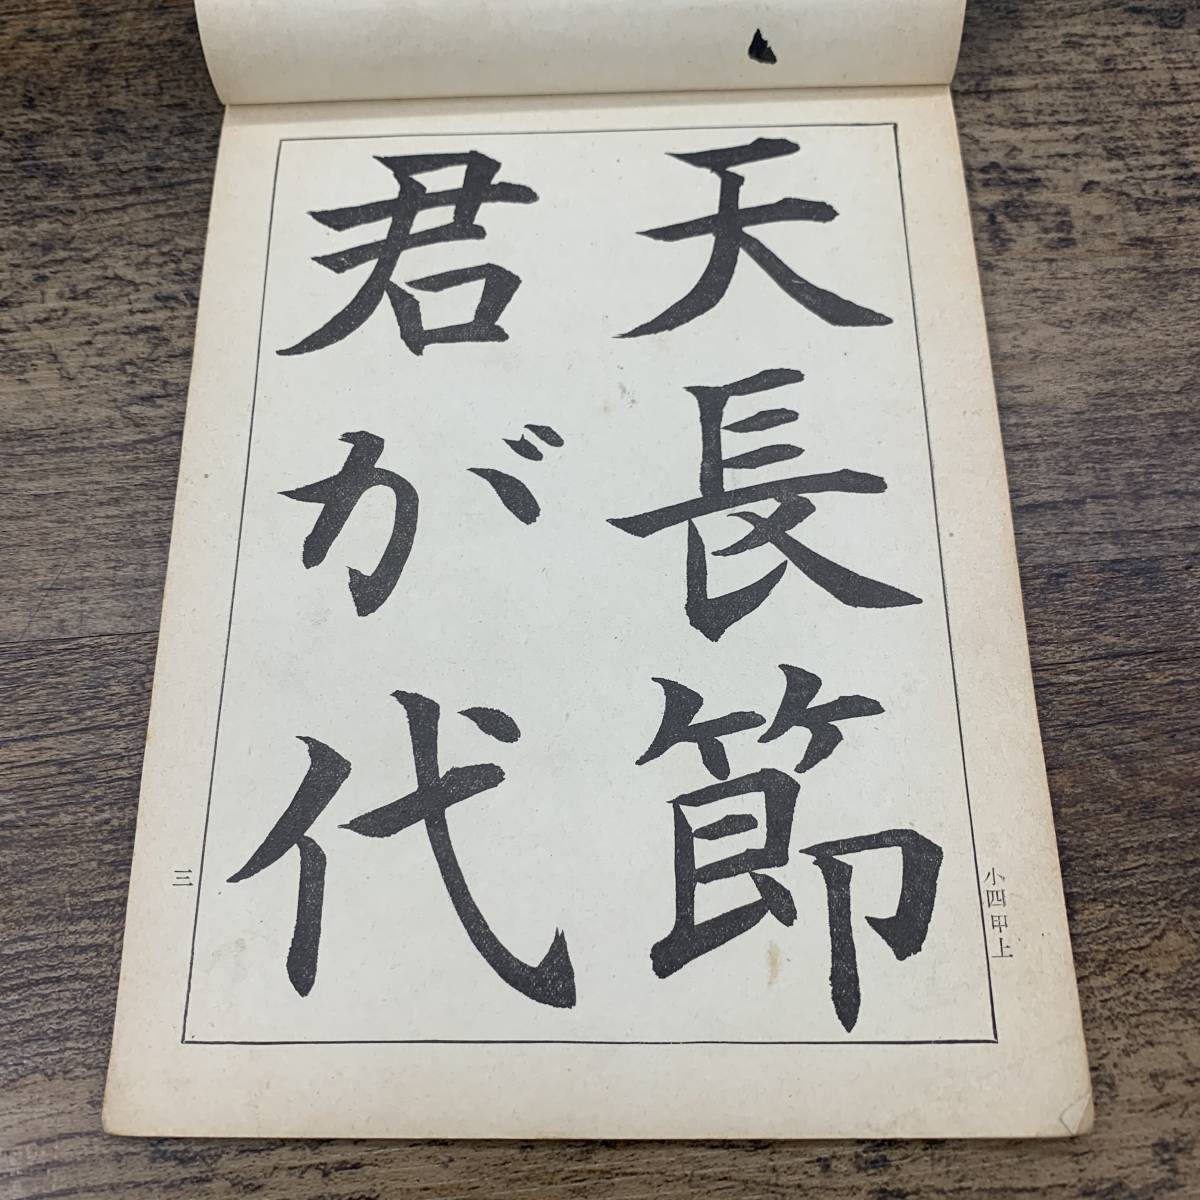 天長節
君が代
小四甲上
三